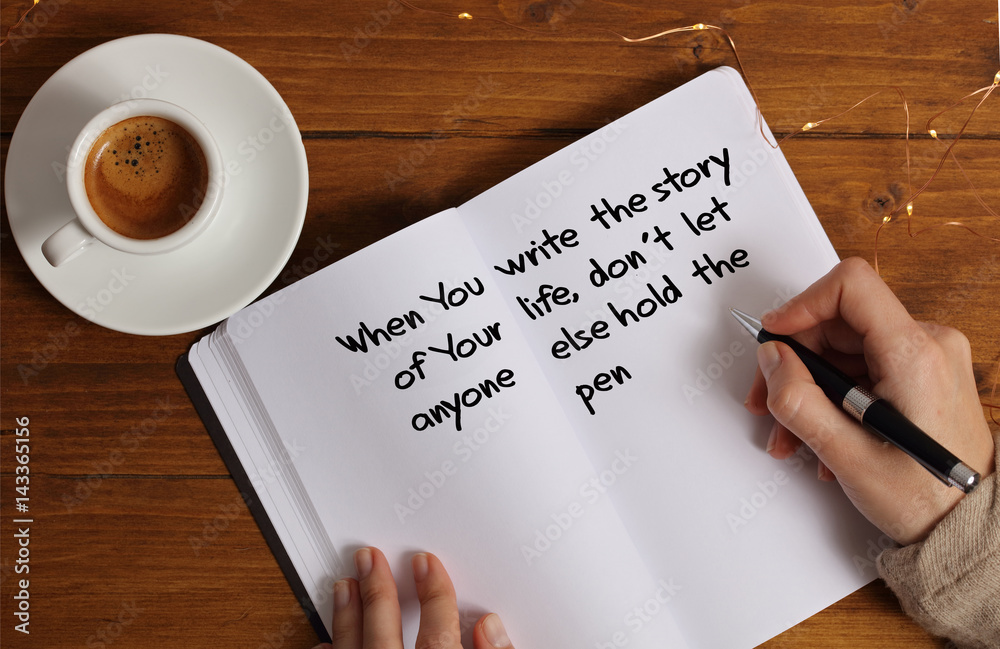 When You write the story
of Your life, don't let
anyone else hold the
pen
Adobe Stock | #143365156